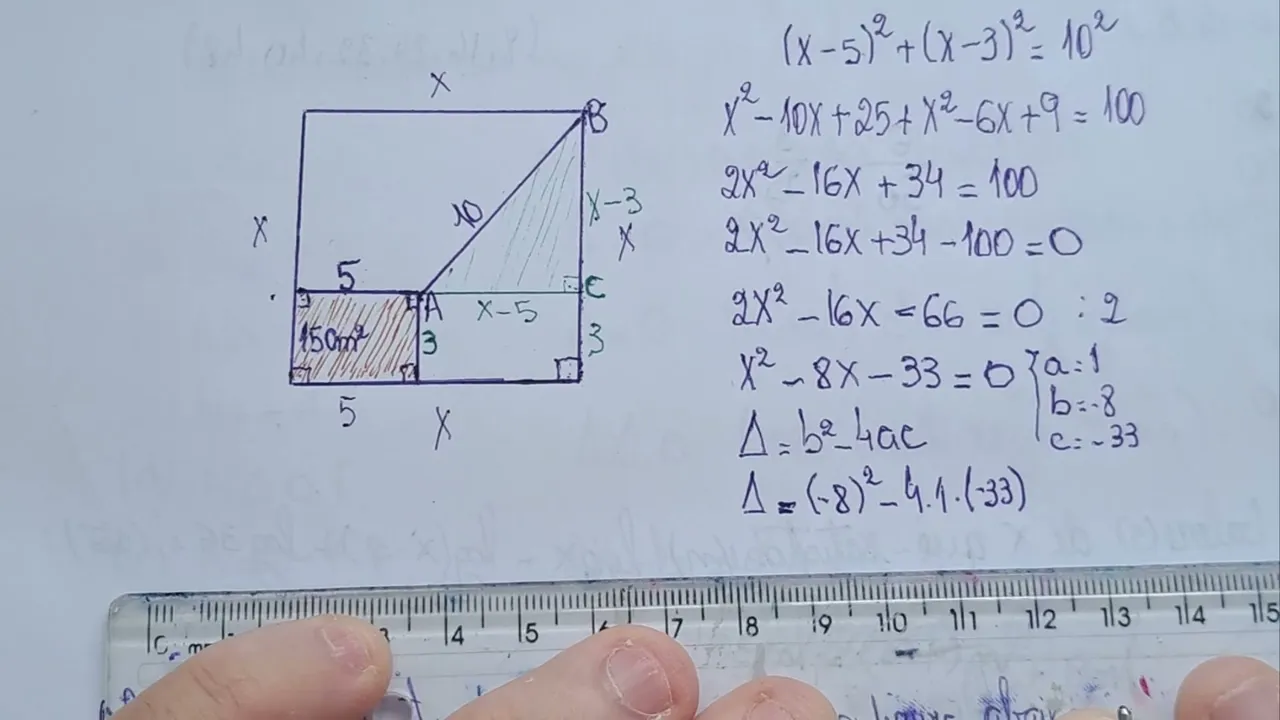 x
B
x
10
x-3
x
5
A
x-5
C
150m²
3
3
5
x
(x-5)² + (x-3)² = 10²
x² - 10x + 25 + x² - 6x + 9 = 100
2x² - 16x + 34 = 100
2x² - 16x + 34 - 100 = 0
2x² - 16x - 66 = 0 :2
x² - 8x - 33 = 0
a=1
b=-8
c=-33
Δ = b² - 4ac
Δ = (-8)² - 4.1.(-33)
3 4 5 6 7 8 9 10 11 12 13 14 15